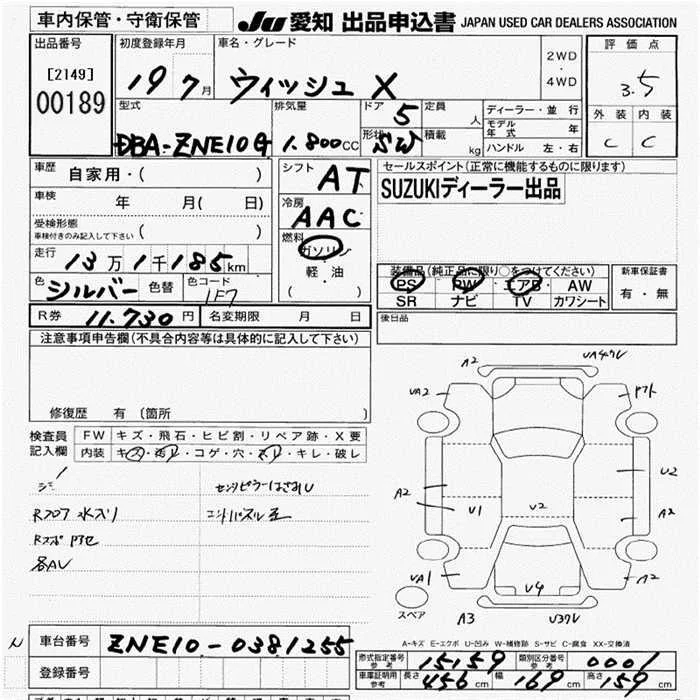 車内保管・守衛保管 JU 愛知 出品申込書 JAPAN USED CAR DEALERS ASSOCIATION
出品番号 初度登録年月 車名・グレード 2WD・4WD 評価点
[2149] 00189 19 7月 ウィッシュ X 3.5
型式 排気量 ドア 5 定員 人 ディーラー・並行 外装 内装
DBA-ZNE10G 1.800CC 形状 SW 積載 kg モデル年式 年 C C
ハンドル 左・右
車歴 自家用・( ) シフト AT セールスポイント(正常に機能するものに限ります)
車検 年 月( 日) 冷房 AAC SUZUKIディーラー出品
受検形態 車検付きのみ記入して下さい ( )
走行 13万1千185km 燃料 ガソリン 軽・油 ( )
色 シルバー 色替 色コード 1F7
装備品(純正品に限り○をつけてください) 新車保証書
PS PW エアB AW 有・無
SR ナビ TV カワシート
R券 11.730円 名変期限 月 日 後日品
注意事項申告欄(不具合内容等は具体的に記入して下さい)
修復歴 有(箇所 )
検査員記入欄 FW キズ・飛石・ヒビ割・リペア跡・X要
内装 キズ・汚レ・コゲ・穴・スレ・キレ・破レ
センターピラーはされし
Rフロア 水入り
各AV
A2 UA4クレ
UA2
A2 U1 U2 U2 A2
UA1 U4 A2
スペア A3 U3クレ
A-キズ E-エクボ U-凹み W-補修跡 S-サビ C-腐食 XX-交換済
N 車台番号 ZNE10-0381255
登録番号
形式指定番号 参考 15159 類別区分番号 参考 0001
車庫証明用 参考 長さ 456cm 幅 169cm 高さ 159cm